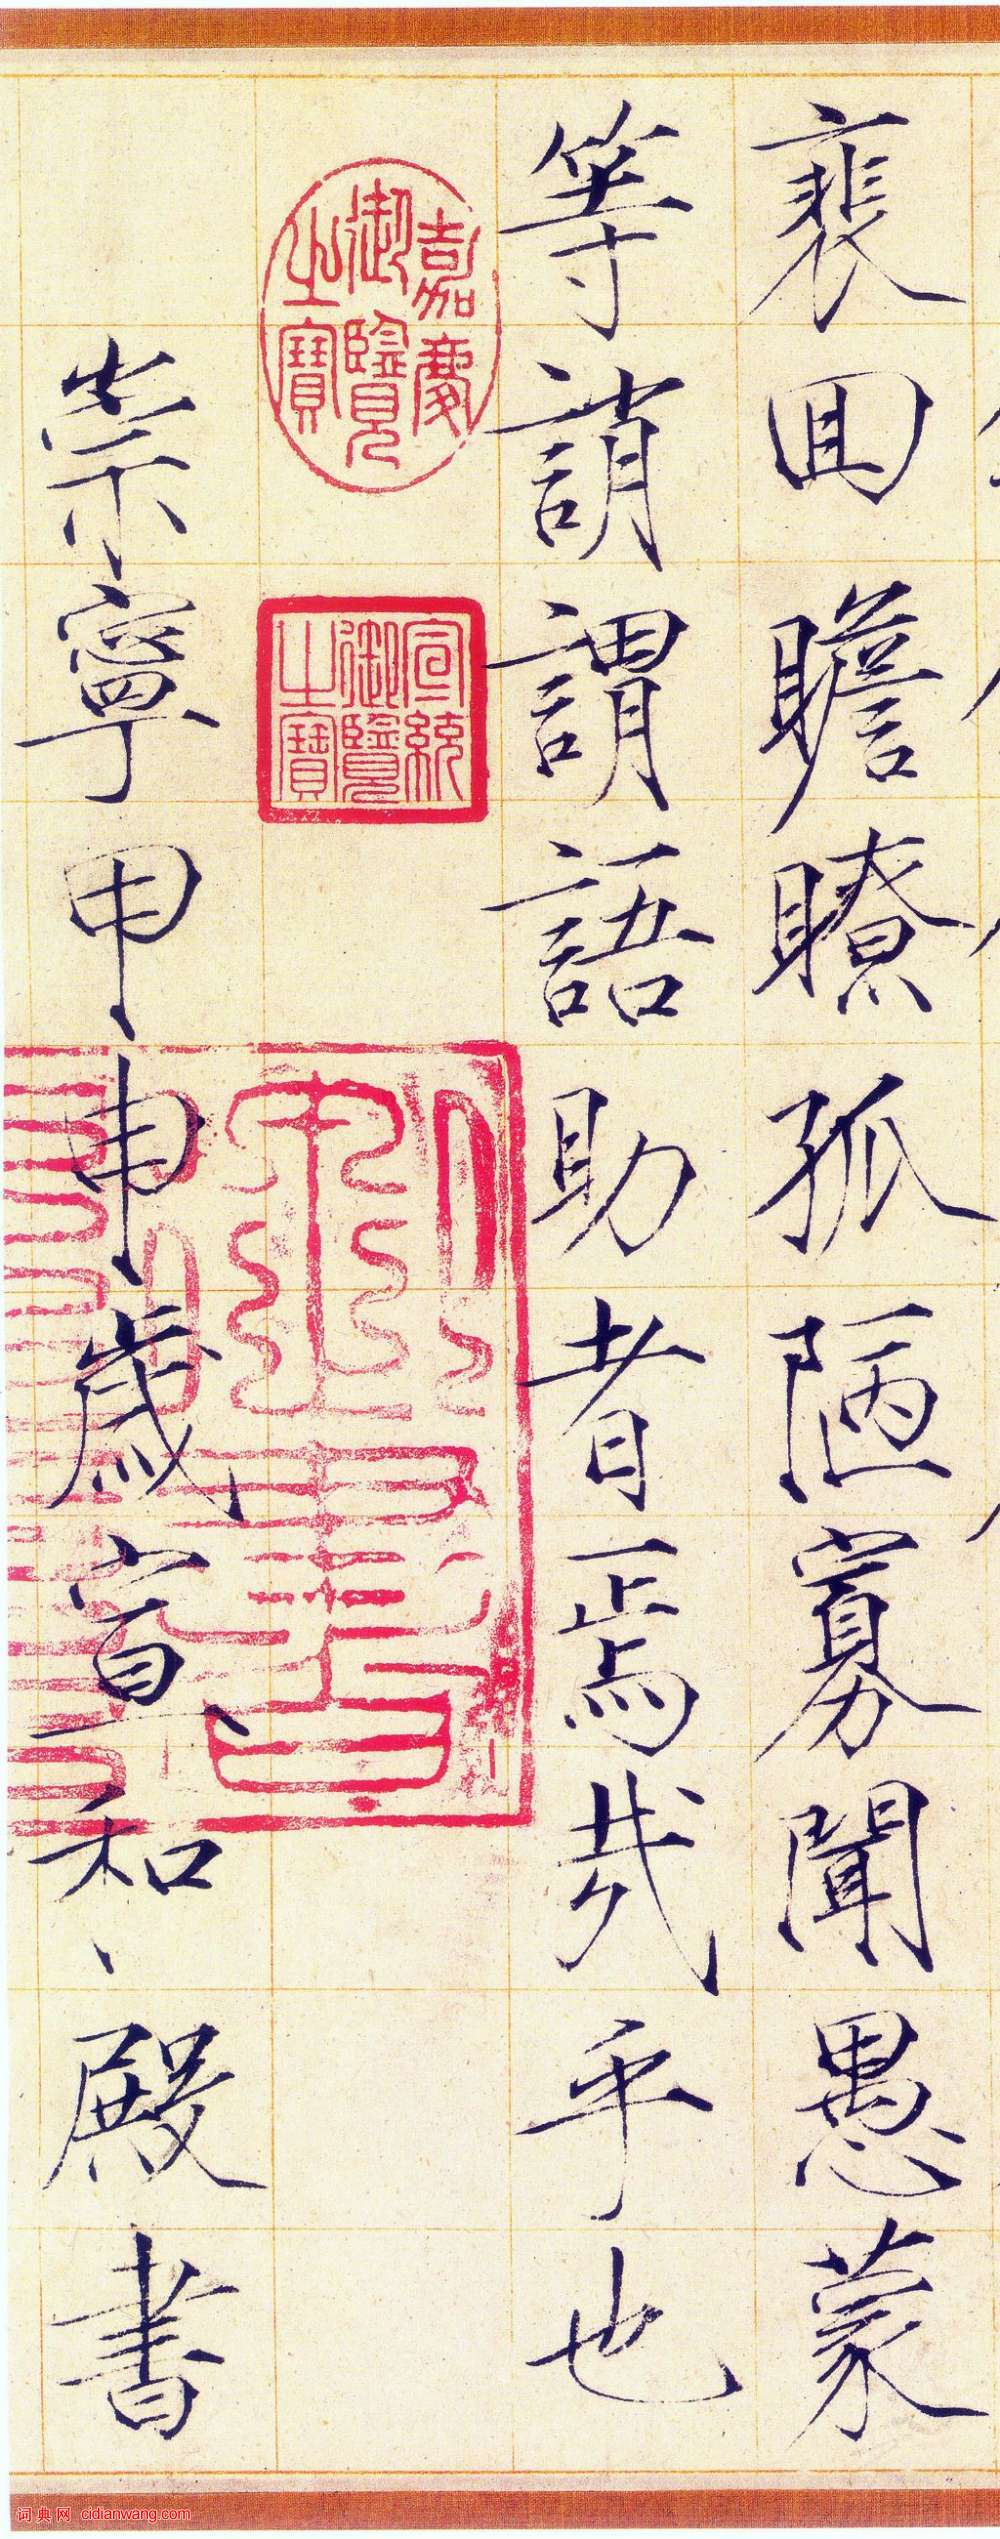 裵囬瞻瞭孤陋寡聞愚蒙
等誚謂語助者焉哉乎也
嘉慶御覽之寶
宣統御覽之寶
崇寧甲申歲宣和殿書
词典网 cidianwang.com